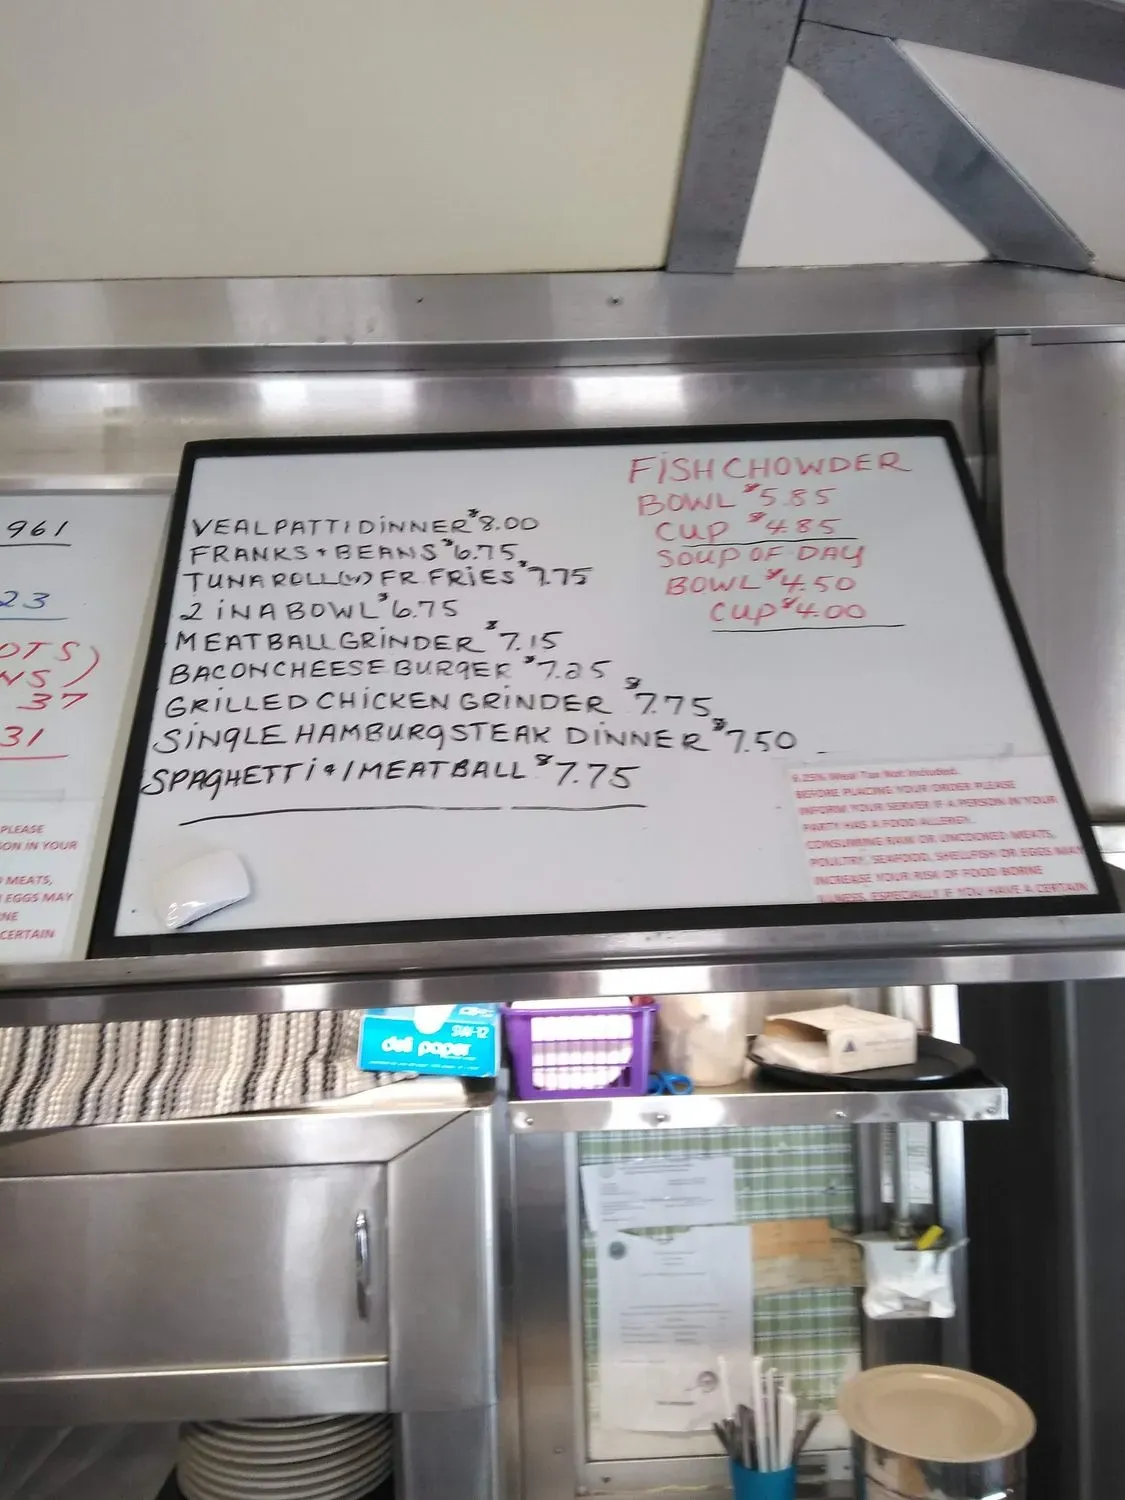 961
23
OTS)
NS)
37
31
PLEASE
ON IN YOUR
MEATS,
EGGS MAY
NE
CERTAIN
VEAL PATTI DINNER $8.00
FRANKS & BEANS $6.75
TUNA ROLL (W) FR. FRIES $7.75
2 IN A BOWL $6.75
MEATBALL GRINDER $7.15
BACON CHEESE BURGER $7.25
GRILLED CHICKEN GRINDER $7.75
SINGLE HAMBURG STEAK DINNER $7.50
SPAGHETTI & 1 MEATBALL $7.75
FISH CHOWDER
BOWL $5.85
CUP $4.85
SOUP OF DAY
BOWL $4.50
CUP $4.00
6.25% Meal Tax Not Included.
BEFORE PLACING YOUR ORDER PLEASE
INFORM YOUR SERVER IF A PERSON IN YOUR
PARTY HAS A FOOD ALLERGY.
CONSUMING RAW OR UNCOOKED MEATS,
POULTRY, SEAFOOD, SHELLFISH OR EGGS MAY
INCREASE YOUR RISK OF FOOD BORNE
ILLNESS, ESPECIALLY IF YOU HAVE A CERTAIN
SW-12
deli paper